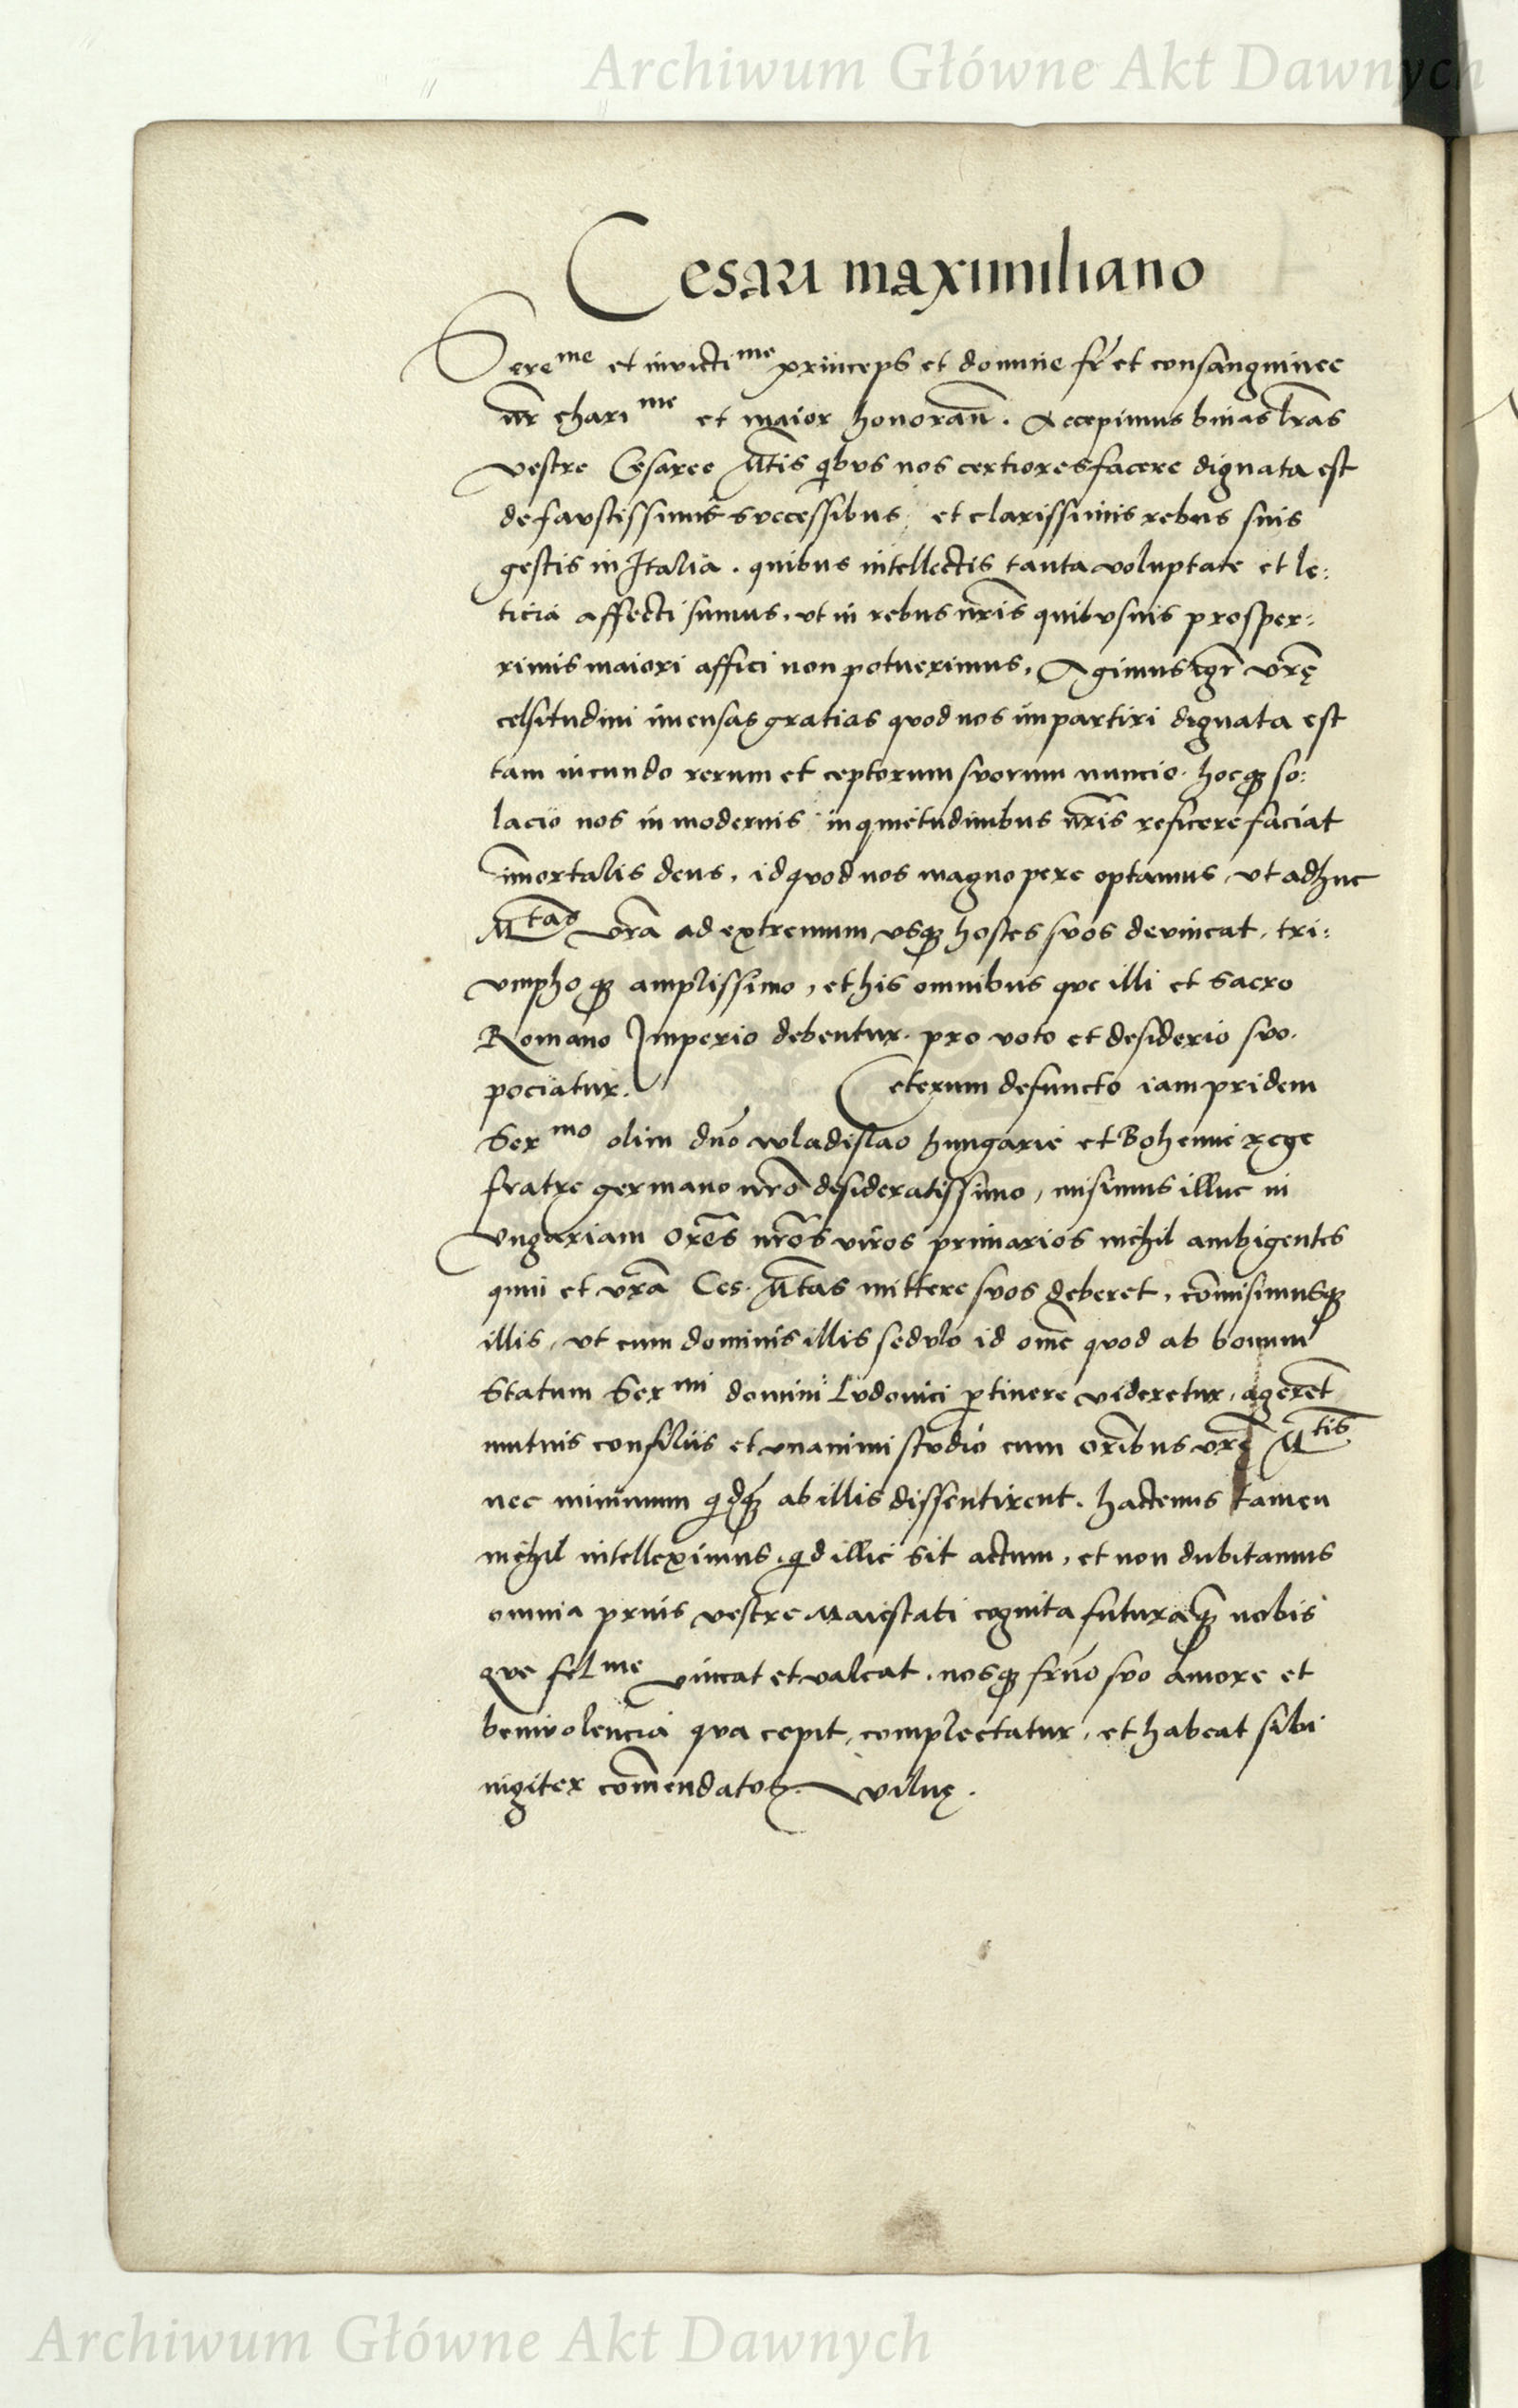 Archiwum Główne Akt Dawnych
Cesari maximiliano
Sere^me et invicti^me princeps et domine fr̃ et consanguinee
nr̃ chari^me et maior honorañ. Accepimus binas lr̃as
vestre Cesaree Mt̃is qibus nos certiores facere dignata est
de faustissimis successibus, et clarissimis rebus suis
gestis in Italia. quibus intellectis tanta voluptate et le:
ticia affecti sumus, ut in rebus nr̃is quibusuis prosper:
rimis maiori affici non potuerimus, Agimus igr̃ vr̃ę
celsitudini imensas gratias quod nos impartiri dignata est
tam iucundo rerum et ceptorum suorum nuncio. hocq so:
lacio nos in modernis inquietudinibus nr̃is reficere faciat
im̃ortalis deus, id quod nos magno pere optamus, ut adhuc
M^tas vr̃a ad extremum usq hostes suos devincat, tri:
umphoq amplissimo, et his omnibus que illi et sacro
Romano Imperio debentur. pro voto et desiderio suo.
pociatur. Ceterum defuncto iam pridem
Ser^mo olim dño wladislao hungarie et Bohemie rege
fratre germano nr̃o desideratissimo, misimus illuc in
ungariam or̃es nr̃os viros primarios nichil ambigentes
quin et vr̃a Ces. Mt̃as mittere suos deberet, com̃isimusq
illis, ut cum dominis illis sedulo id om̃e quod ab bonum
Statum Ser^mi domini Ludovici ptinere videretur, agerẽt
mutuis consiliis et unanimi studio cum or̃ibus vr̃ę M^tis
nec minimum qidq̃ ab illis dissentirent. hactenus tamen
nichil intelleximus, qid illic sit actum, et non dubitamus
omnia prius vestre Maiestati cognita futura q̃ nobis
que fel^me vincat et valeat, nosq fr̃no suo amore et
benivolencia qua cepit, complectatur, et habeat sibi
iugiter com̃endatos. Vilnę.
Archiwum Główne Akt Dawnych